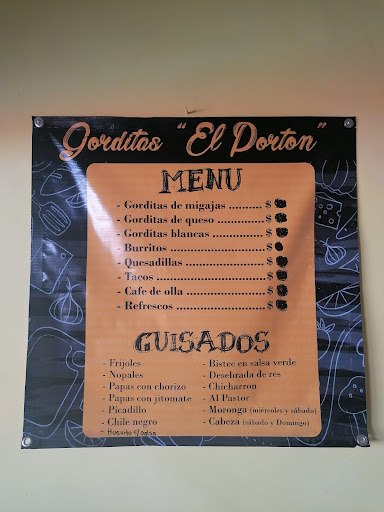 Gorditas "El Porton"
MENU
- Gorditas de migajas .......... $
- Gorditas de queso ............. $
- Gorditas blancas ............... $
- Burritos ............................ $
- Quesadillas ....................... $
- Tacos ................................ $
- Cafe de olla ....................... $
- Refrescos .......................... $
GUISADOS
- Frijoles
- Nopales
- Papas con chorizo
- Papas con jitomate
- Picadillo
- Chile negro
- Huevito c/salsa
- Bistec en salsa verde
- Desebrada de res
- Chicharron
- Al Pastor
- Moronga (miércoles y sábado)
- Cabeza (sábado y Domingo)